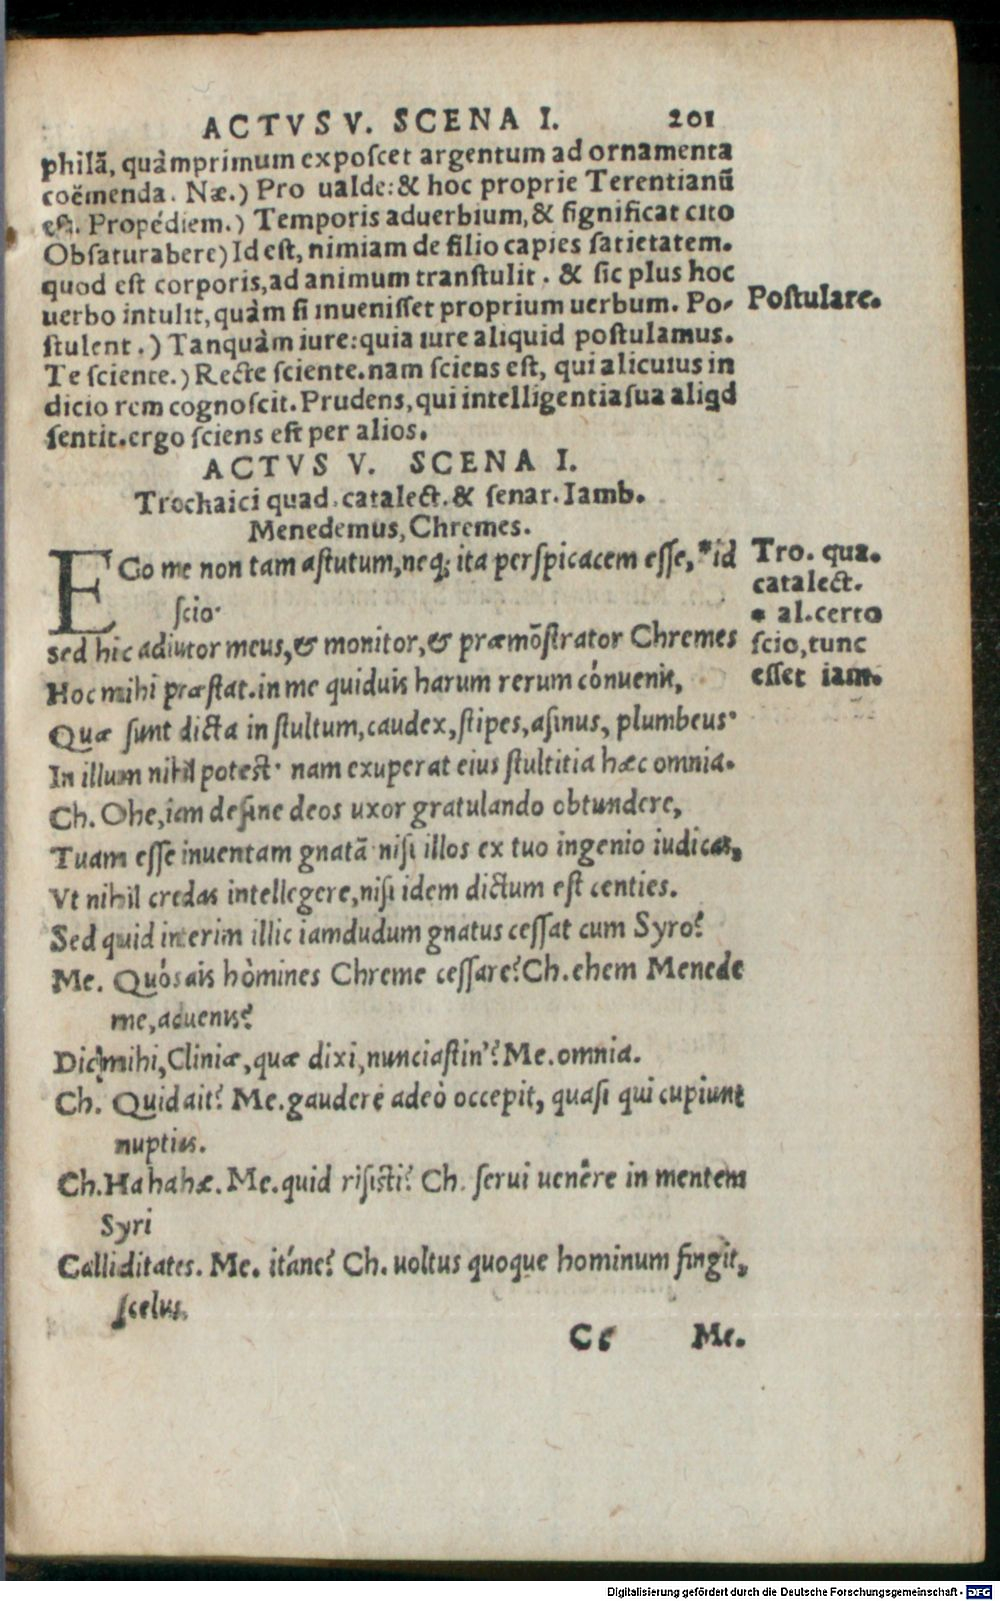 ACTVS V. SCENA I. 201
philã, quàmprimum exposcet argentum ad ornamenta
coëmenda. Næ.) Pro ualde: & hoc proprie Terentianũ
est. Propédiem.) Temporis aduerbium, & significat cito
Obsaturabere) Id est, nimiam de filio capies satietatem.
quod est corporis, ad animum transtulit. & sic plus hoc
uerbo intulit, quàm si inuenisset proprium uerbum. Po-
stulent.) Tanquàm iure: quia iure aliquid postulamus.
Postulare.
Te sciente.) Recte sciente. nam sciens est, qui alicuius in
dicio rem cognoscit. Prudens, qui intelligentia sua aliqd
sentit. ergo sciens est per alios.
ACTVS V. SCENA I.
Trochaici quad. catalect. & senar. Iamb.
Menedemus, Chremes.
EGo me non tam astutum, neq; ita perspicacem esse, *id
scio·
Tro. qua.
catalect.
* al. certo
scio, tunc
esset iam.
sed hic adiutor meus, & monitor, & præmõstrator Chremes
Hoc mihi præstat. in me quiduis harum rerum cónuenit,
Quæ sunt dicta in stultum, caudex, stipes, asinus, plumbeus·
In illum nihil potest· nam exuperat eius stultitia hæc omnia.
Ch. Ohe, iam desine deos uxor gratulando obtundere,
Tuam esse inuentam gnatã nisi illos ex tuo ingenio iudicas,
Vt nihil credas intellegere, nisi idem dictum est centies.
Sed quid interim illic iamdudum gnatus cessat cum Syro?
Me. Quós ais hòmines Chreme cessare? Ch. ehem Menede
me, aduenis?
Dic mihi, Cliniæ, quæ dixi, nunciastin'? Me. omnia.
Ch. Quid ait? Me. gaudere adeò occepit, quasi qui cupiunt
nuptias.
Ch. Hahahæ. Me. quid risisti? Ch. serui uenêre in mentem
Syri
Calliditates. Me. itáne? Ch. uoltus quoque hominum fingit,
scelus.
Cc Me.
Digitalisierung gefördert durch die Deutsche Forschungsgemeinschaft - DFG